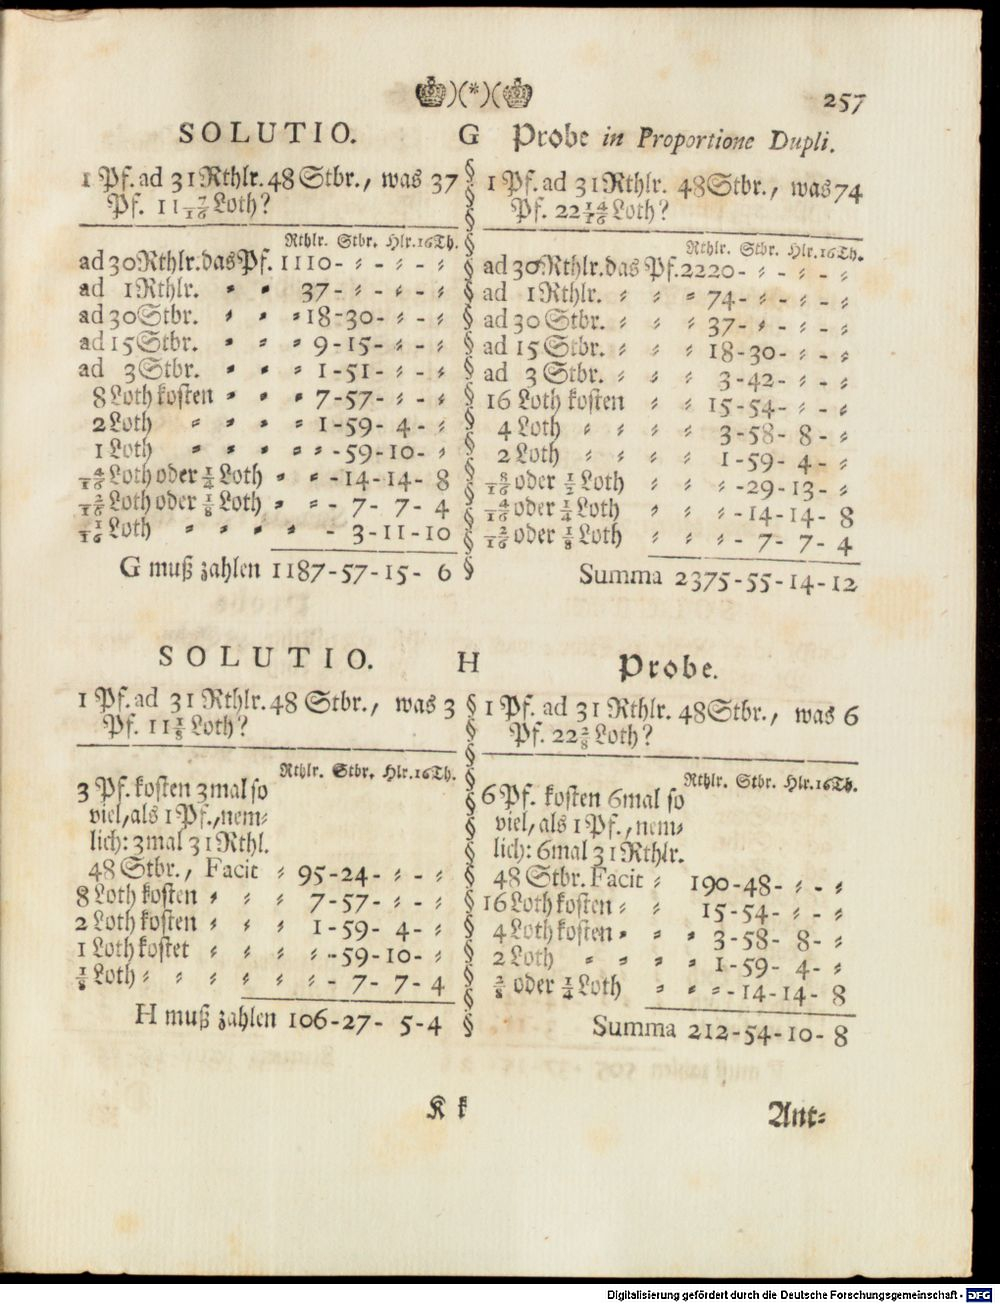 )(*)(
257
SOLUTIO. G
1 Pf. ad 31 Rthlr. 48 Stbr., was 37
Pf. 11 7/16 Loth?
Rthlr. Stbr. Hlr. 16Th.
ad 30 Rthlr. das Pf. 1110- ⸗ - ⸗ - ⸗
ad 1 Rthlr. ⸗ ⸗ 37- ⸗ - ⸗ - ⸗
ad 30 Stbr. ⸗ ⸗ ⸗ 18-30- ⸗ - ⸗
ad 15 Stbr. ⸗ ⸗ ⸗ 9-15- ⸗ - ⸗
ad 3 Stbr. ⸗ ⸗ ⸗ 1-51- ⸗ - ⸗
8 Loth kosten ⸗ ⸗ ⸗ 7-57- ⸗ - ⸗
2 Loth ⸗ ⸗ ⸗ ⸗ 1-59- 4- ⸗
1 Loth ⸗ ⸗ ⸗ ⸗ ⸗ -59-10- ⸗
4/16 Loth oder 1/4 Loth ⸗ ⸗ -14-14- 8
2/16 Loth oder 1/8 Loth ⸗ ⸗ - 7- 7- 4
1/16 Loth ⸗ ⸗ ⸗ ⸗ - 3-11-10
G muß zahlen 1187-57-15- 6
Probe in Proportione Dupli.
1 Pf. ad 31 Rthlr. 48 Stbr., was 74
Pf. 22 14/16 Loth?
Rthlr. Stbr. Hlr. 16Th.
ad 30 Rthlr. das Pf. 2220- ⸗ - ⸗ - ⸗
ad 1 Rthlr. ⸗ ⸗ ⸗ 74- ⸗ - ⸗ - ⸗
ad 30 Stbr. ⸗ ⸗ ⸗ 37- ⸗ - ⸗ - ⸗
ad 15 Stbr. ⸗ ⸗ ⸗ 18-30- ⸗ - ⸗
ad 3 Stbr. ⸗ ⸗ ⸗ 3-42- ⸗ - ⸗
16 Loth kosten ⸗ ⸗ 15-54- ⸗ - ⸗
4 Loth ⸗ ⸗ ⸗ ⸗ 3-58- 8- ⸗
2 Loth ⸗ ⸗ ⸗ ⸗ 1-59- 4- ⸗
8/16 oder 1/2 Loth ⸗ ⸗ ⸗ -29-13- ⸗
4/16 oder 1/4 Loth ⸗ ⸗ ⸗ -14-14- 8
2/16 oder 1/8 Loth ⸗ ⸗ ⸗ - 7- 7- 4
Summa 2375-55-14-12
SOLUTIO. H
1 Pf. ad 31 Rthlr. 48 Stbr., was 3
Pf. 11 1/8 Loth?
Rthlr. Stbr. Hlr. 16Th.
3 Pf. kosten 3mal so
viel, als 1 Pf., nem⸗
lich: 3mal 31 Rthl.
48 Stbr., Facit ⸗ 95-24- ⸗ - ⸗
8 Loth kosten ⸗ ⸗ ⸗ 7-57- ⸗ - ⸗
2 Loth kosten ⸗ ⸗ ⸗ 1-59- 4- ⸗
1 Loth kostet ⸗ ⸗ ⸗ ⸗ -59-10- ⸗
1/8 Loth ⸗ ⸗ ⸗ ⸗ ⸗ ⸗ - 7- 7- 4
H muß zahlen 106-27- 5-4
Probe.
1 Pf. ad 31 Rthlr. 48 Stbr., was 6
Pf. 22 2/8 Loth?
Rthlr. Stbr. Hlr. 16Th.
6 Pf. kosten 6mal so
viel, als 1 Pf., nem⸗
lich: 6mal 31 Rthlr.
48 Stbr. Facit ⸗ 190-48- ⸗ - ⸗
16 Loth kosten ⸗ ⸗ 15-54- ⸗ - ⸗
4 Loth kosten ⸗ ⸗ ⸗ 3-58- 8- ⸗
2 Loth ⸗ ⸗ ⸗ ⸗ 1-59- 4- ⸗
2/8 oder 1/4 Loth ⸗ ⸗ ⸗ -14-14- 8
Summa 212-54-10- 8
K k
Ant⸗
Digitalisierung gefördert durch die Deutsche Forschungsgemeinschaft - DFG